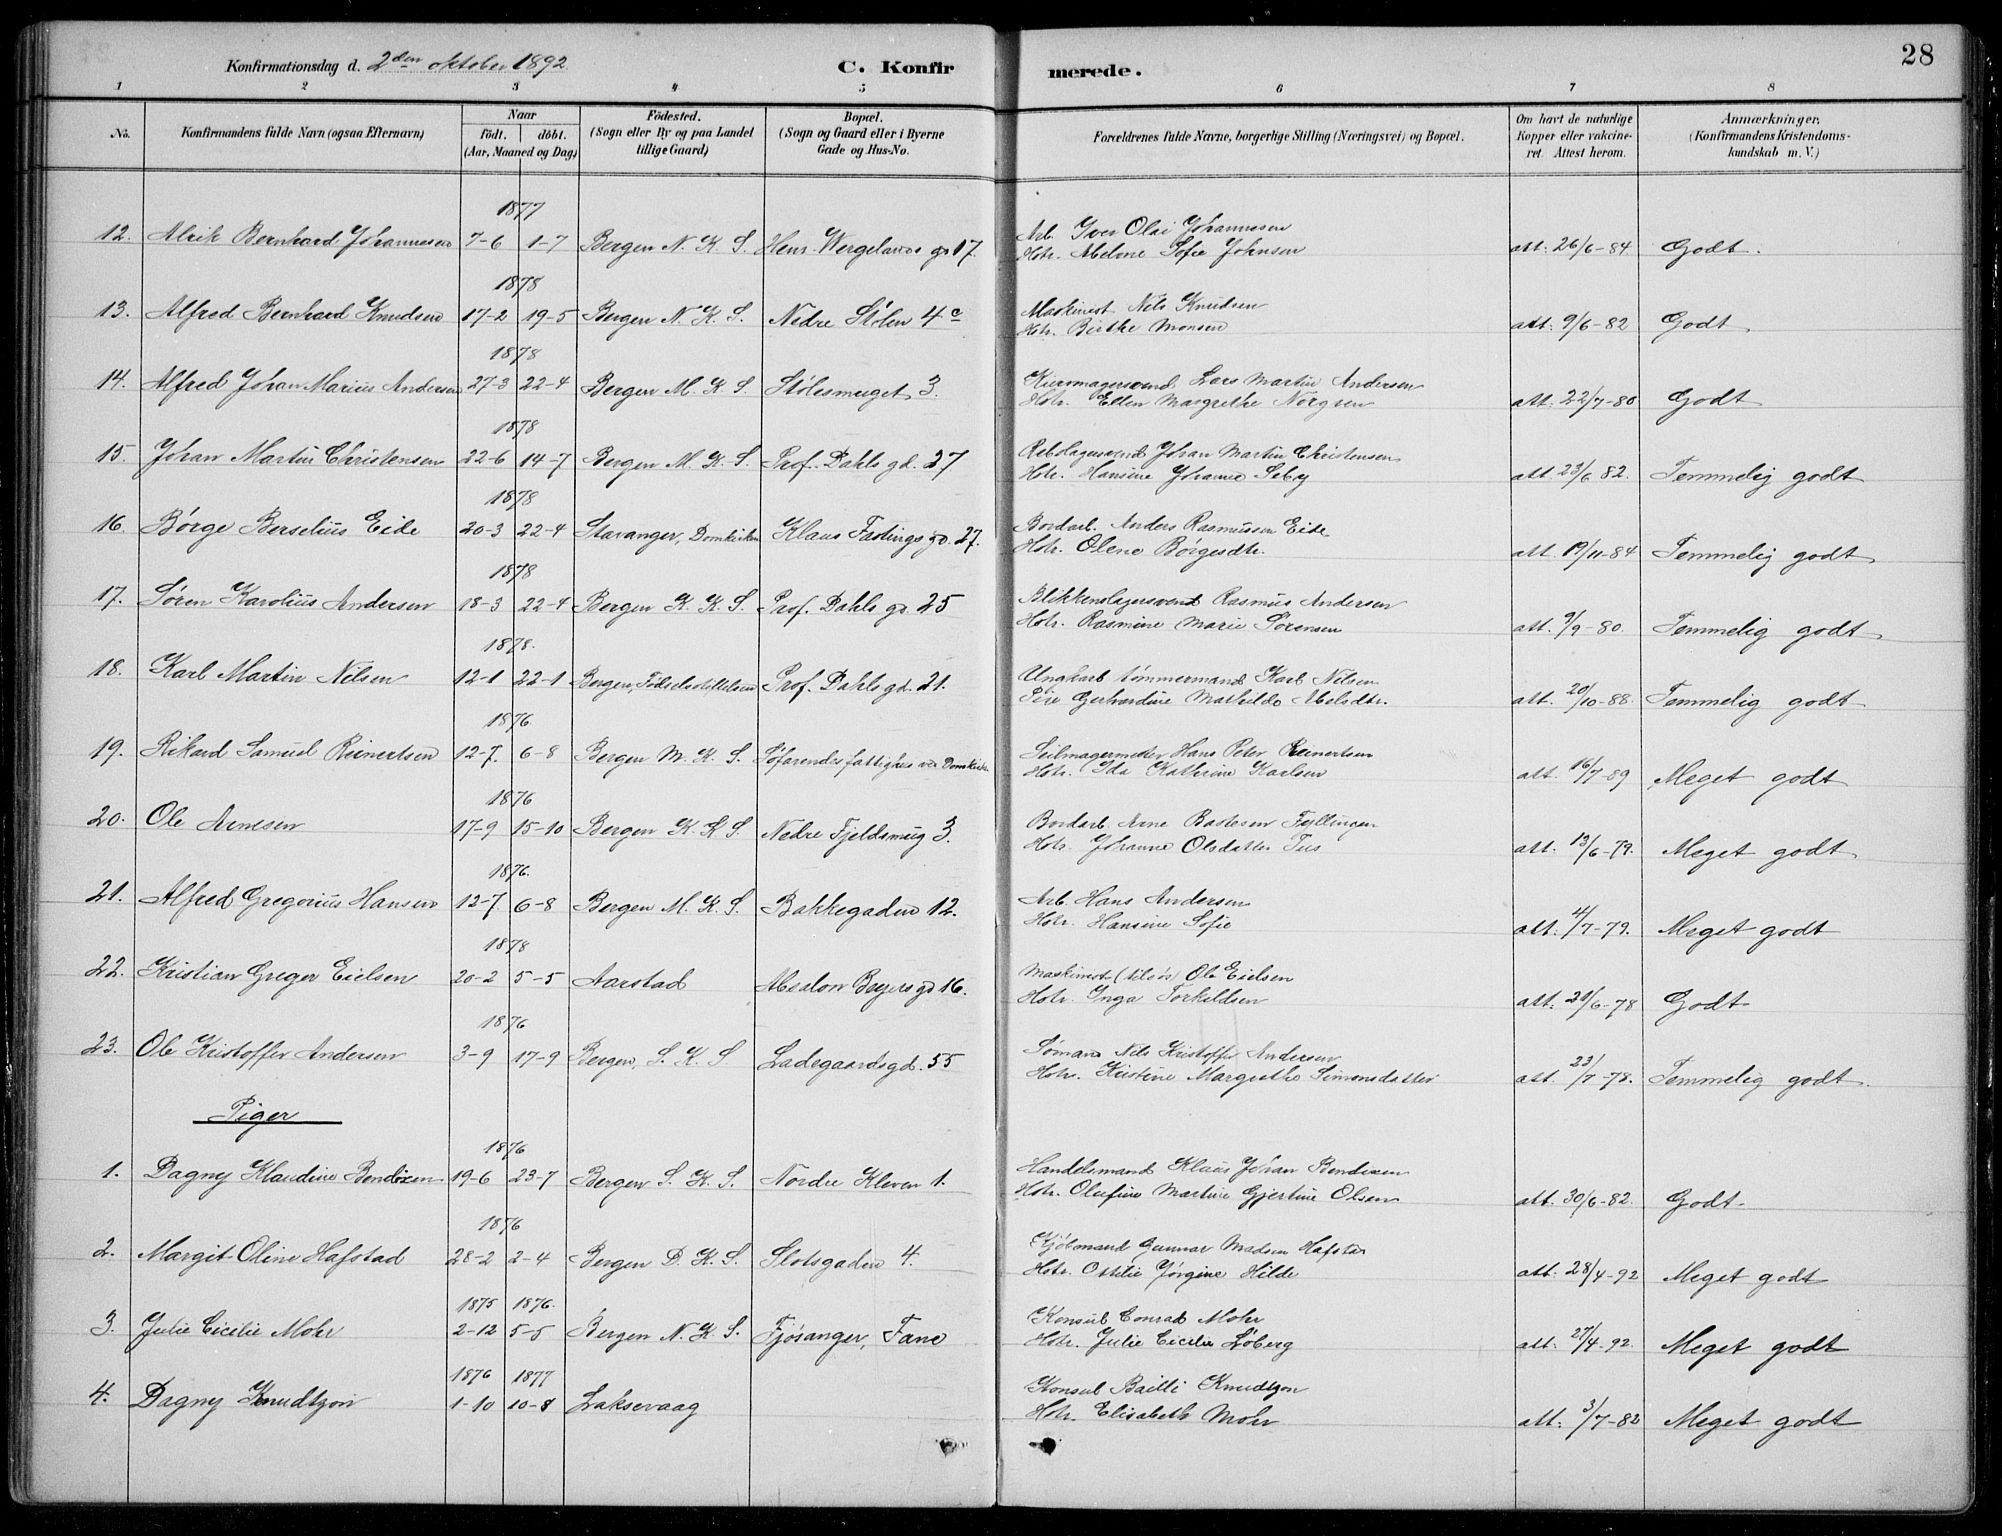 28
Konfirmationsdag d. 2den oktober 1892
C. Konfirmerede.
1 2 3 4 5 6 7 8
No. Konfirmandens fulde Navn (ogsaa Efternavn) Naar födt. döbt. (Aar, Maaned og Dag) Födested. (Sogn eller By og paa Landet tillige Gaard) Bopæl. (Sogn og Gaard eller i Byerne Gade og Hus-No. Forældrenes fulde Navne, borgerlige Stilling (Næringsvei) og Bopæl. Om havt de naturlige Kopper eller vakcineret. Attest herom. Anmærkninger. (Konfirmandens Kristendomskundskab m. V.)
1877
12. Alrik Bernhard Johannesen 7-6 1-7 Bergen N. K. S. Henr. Wergelands gd 17. Arb. Iver Olai Johannesen
Hstr. Abelone Sofie Johnsen att. 26/6-84 Godt.
1878
13. Alfred Bernhard Knudsen 17-2 19-5 Bergen N. K. S. Nedre Stölen 4c Maskinist Nils Knudsen
Hstr. Birthe Monsen att. 9/6-82 Godt
1878
14. Alfred Johan Marius Andersen 27-3 22-4 Bergen M. K. S. Stölesmuget 3. Lars Martin Andersen
Hstr. Ellen Margrethe att. 22/7-80 Godt
1878
15. Johan Martin Christensen 22-6 14-7 Bergen M. K. S. Prof. Dahls gd. 27 Johan Martin Christensen
Hstr. Hansine Johanne Seby att. 23/6 82. Temmelig godt
1878
16. Börge Berselius Eide 20-3 22-4 Stavanger, Domkirken Klaus Fastings gd. 27. Bordarb. Anders Rasmussen Eide
Hstr. Olene Börgesdtr. att. 19/11-84 Temmelig godt
1878
17. Sören Karolius Andersen 18-3 22-4 Bergen K. K. S. Prof. Dahls gd. 25 Blikkenslagersvend Rasmus Andersen
Hstr. Rasmine Marie Sörensen att. 9/9-80. Temmelig godt
1878.
18. Karl Martin Nilsen 12-1 22-1 Bergen, Födselsstiftelsen Prof. Dahls gd. 21. Ungkarl tömmermand Karl Nilsen
Pige Gerhardine Mathilde Abelsdtr. att. 20/10-88. Temmelig godt
1876.
19. Rikard Samuel Reinertsen 12-7. 6-8 Bergen M. K. S. Söfarendes fattighus ved Domkirken Seilmagermester Hans Peter Reinertsen
Hstr. Ida Kathrine Karlsen att. 16/7-89 Meget godt
1876
20. Ole Arnesen 17-9 15-10 Bergen K. K. S. Nedre Fjeldsmug 3. Bordarb. Arne Bastesen Fyllingen
Hstr. Johanne Olsdatter att. 13/6-79. Meget godt
1876.
21. Alfred Gregorius Hansen 12-7 6-8 Bergen M. K. S. Bakkegaden 12. Arb. Hans Andersen
Hstr. Hansine Sofie att. 4/7-79. Meget godt
1878
22. Kristian Greger Eielsen 20-2 5-5 Aarstad Absalon Beyers gd 16. Maskinist (tilsös) Ole Eielsen
Hstr. Inga Torkildsen att. 21/6-78 Godt
1876
23. Ole Kristoffer Andersen 3-9 17-9 Bergen, S. K. S Ladegaardsgd. 55 Sömand Nils Kristoffer Andersen
Hstr. Kristine Margrethe Simonsdatter att. 23/7-78. Temmelig godt.
Piger
1876
1. Dagny Klaudine Bendixen 19-6 23-7 Bergen S. K. S. Nordre Kleven 1. Handelsmand Klaus Johan Bendixen
Hstr. Olufine Martine Gjertine Olsen att. 30/6-82. Godt.
1876
2. Margit Oline Hafstad 28-2 2-4 Bergen D. K. S. Slotsgaden 4. Kjöbmand Gunnar Madsen Hafstad
Hstr. Ottilie Jörgine Hilde att. 28/4-92 Meget godt
1875 1876.
3. Julie Cicilie Mohr 2-12 5-5 Bergen N. K. S. Fjösanger, Fane Konsul Conrad Mohr
Hstr. Julie Cicilie Löberg att. 27/4-92. Meget godt
1876 1877
4. Dagny Knudtzon 1-10 10-8 Laksevaag Konsul Bailli Knudtzon
Hstr. Elisabeth Mohr att. 3/7-82 Meget godt